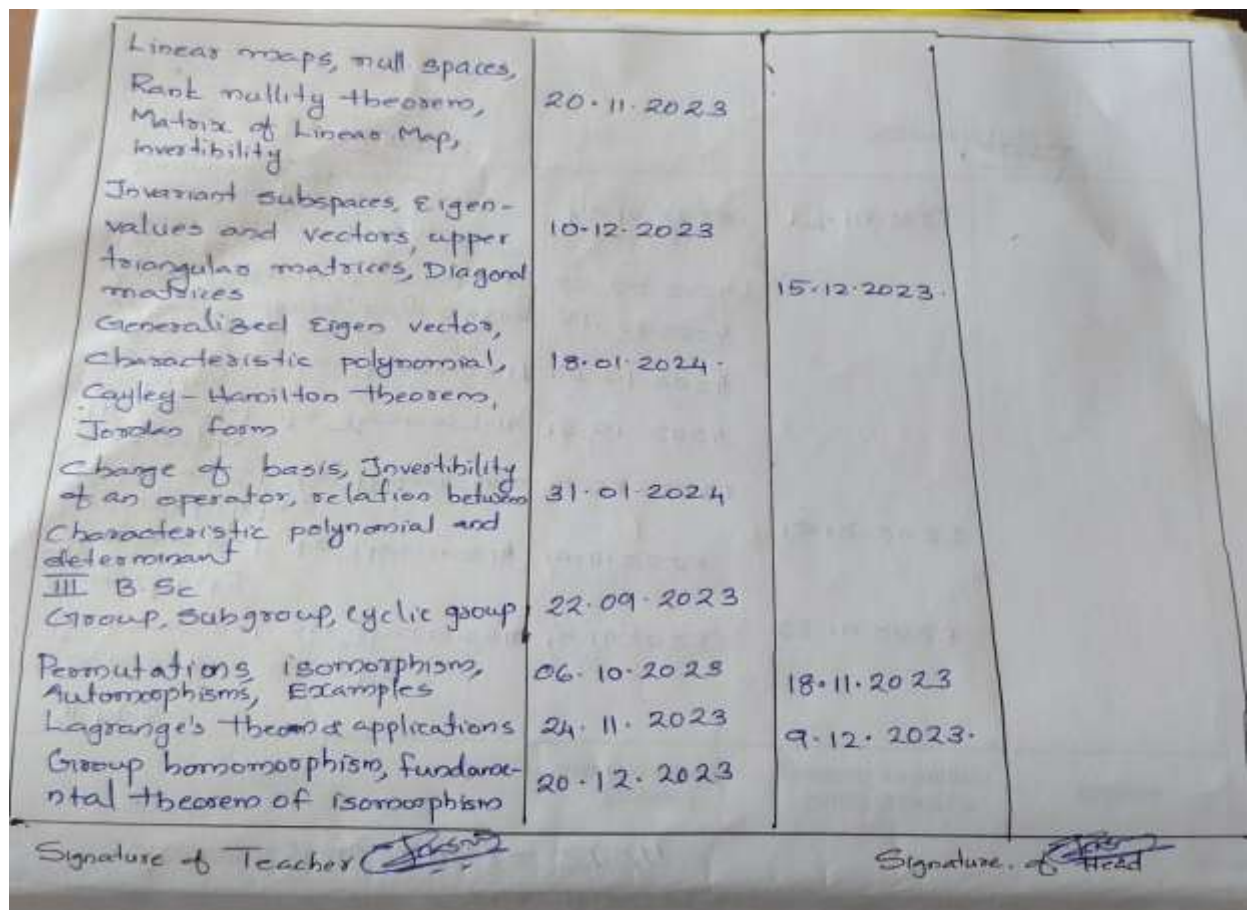 Linear maps, null spaces,
Rank nullity theorem, 20.11.2023
Matrix of Linear Map,
invertibility
Invariant subspaces, Eigen-
values and vectors, upper 10.12.2023
triangular matrices, Diagonal
matrices 15.12.2023.
Generalized Eigen vector,
Characteristic polynomial, 18.01.2024.
Cayley-Hamilton theorem,
Jordan form
Change of basis, Invertibility
of an operator, relation between 31.01.2024
Characteristic polynomial and
determinant
III B.Sc
Group, subgroup, cyclic group 22.09.2023
Permutations, isomorphism, 06.10.2023
Automorphisms, Examples 18.11.2023
Lagrange's theorem & applications 24.11.2023
9.12.2023.
Group homomorphism, fundame- 20.12.2023
ntal theorem of isomorphism
Signature of Teacher Signature of Head